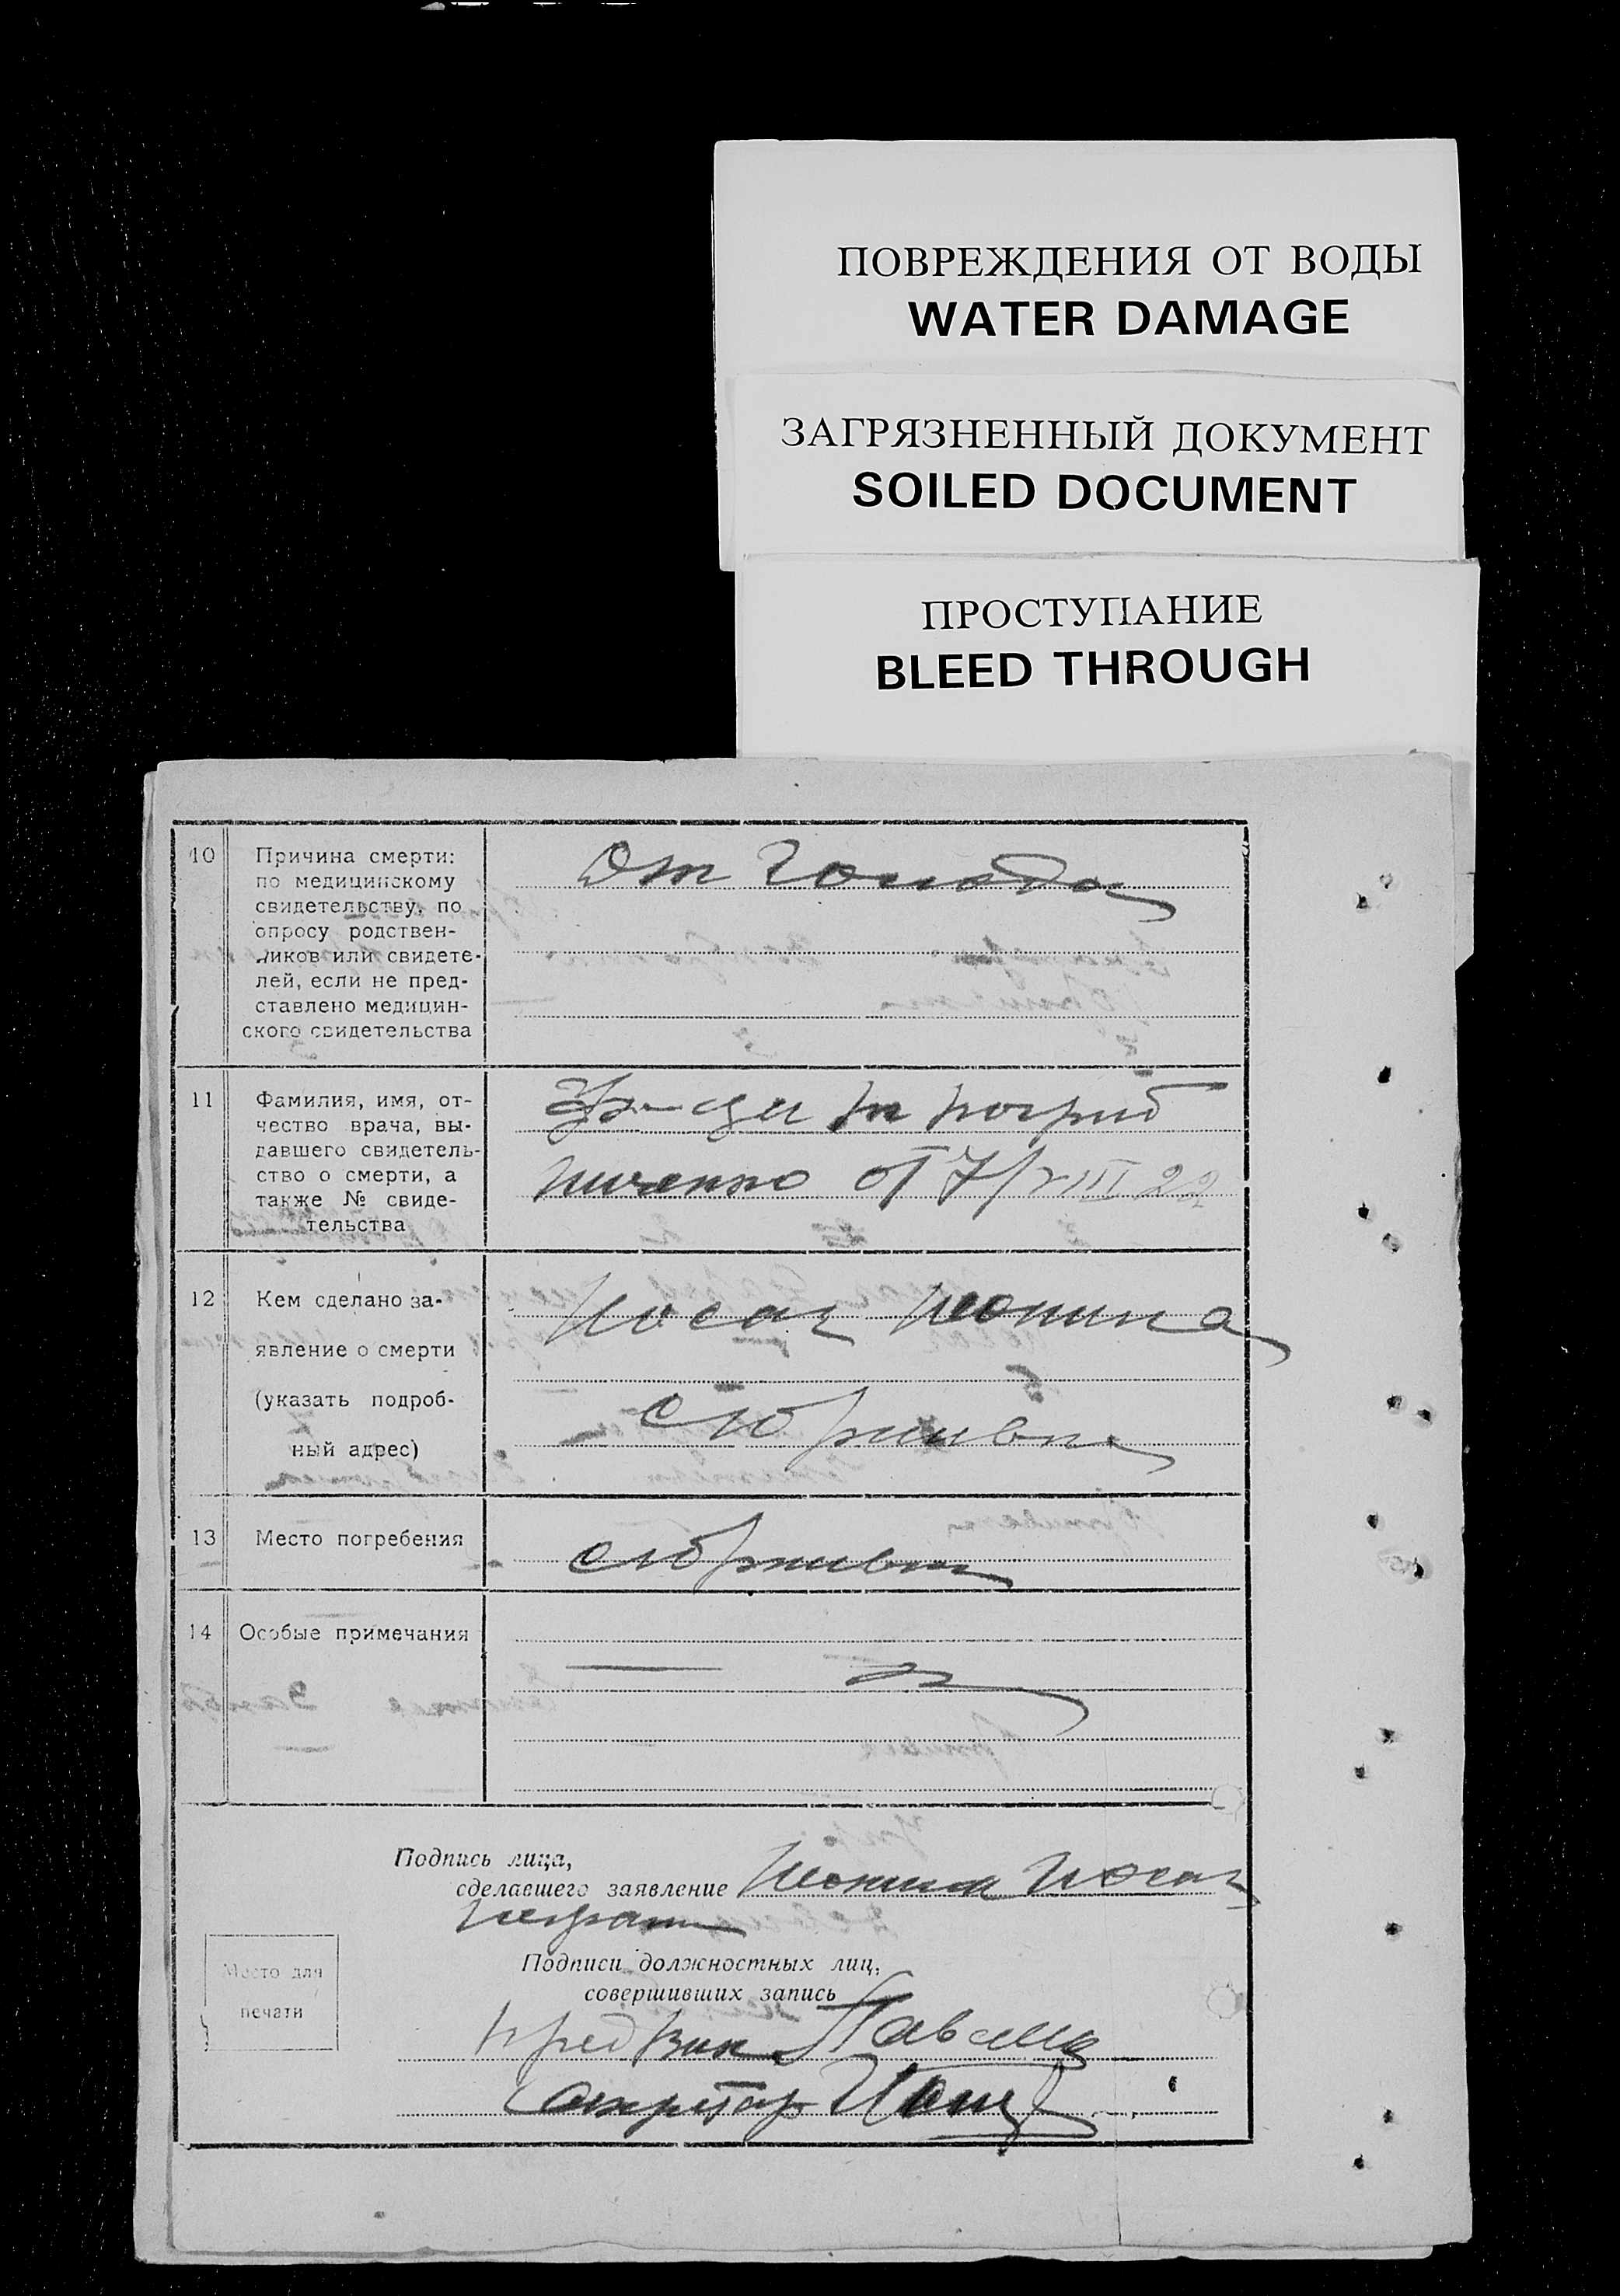 ПОВРЕЖДЕНИЯ ОТ ВОДЫ
WATER DAMAGE
ЗАГРЯЗНЕННЫЙ ДОКУМЕНТ
SOILED DOCUMENT
ПРОСТУПАНИЕ
BLEED THROUGH
10 Причина смерти: От голода
по медицинскому
свидетельству, по
опросу родствен-
ников или свидете-
лей, если не пред-
ставлено медицин-
ского свидетельства
11 Фамилия, имя, от-
чество врача, вы-
давшего свидетель-
ство о смерти, а
также № свиде-
тельства
от 7/VIII 22
12 Кем сделано за-
явление о смерти
(указать подроб-
ный адрес)
Носач
13 Место погребения
14 Особые примечания
Подпись лица,
сделавшего заявление Носач
неграм
Подписи должностных лиц,
совершивших запись
Место для
печати
Пред вик
Секретар